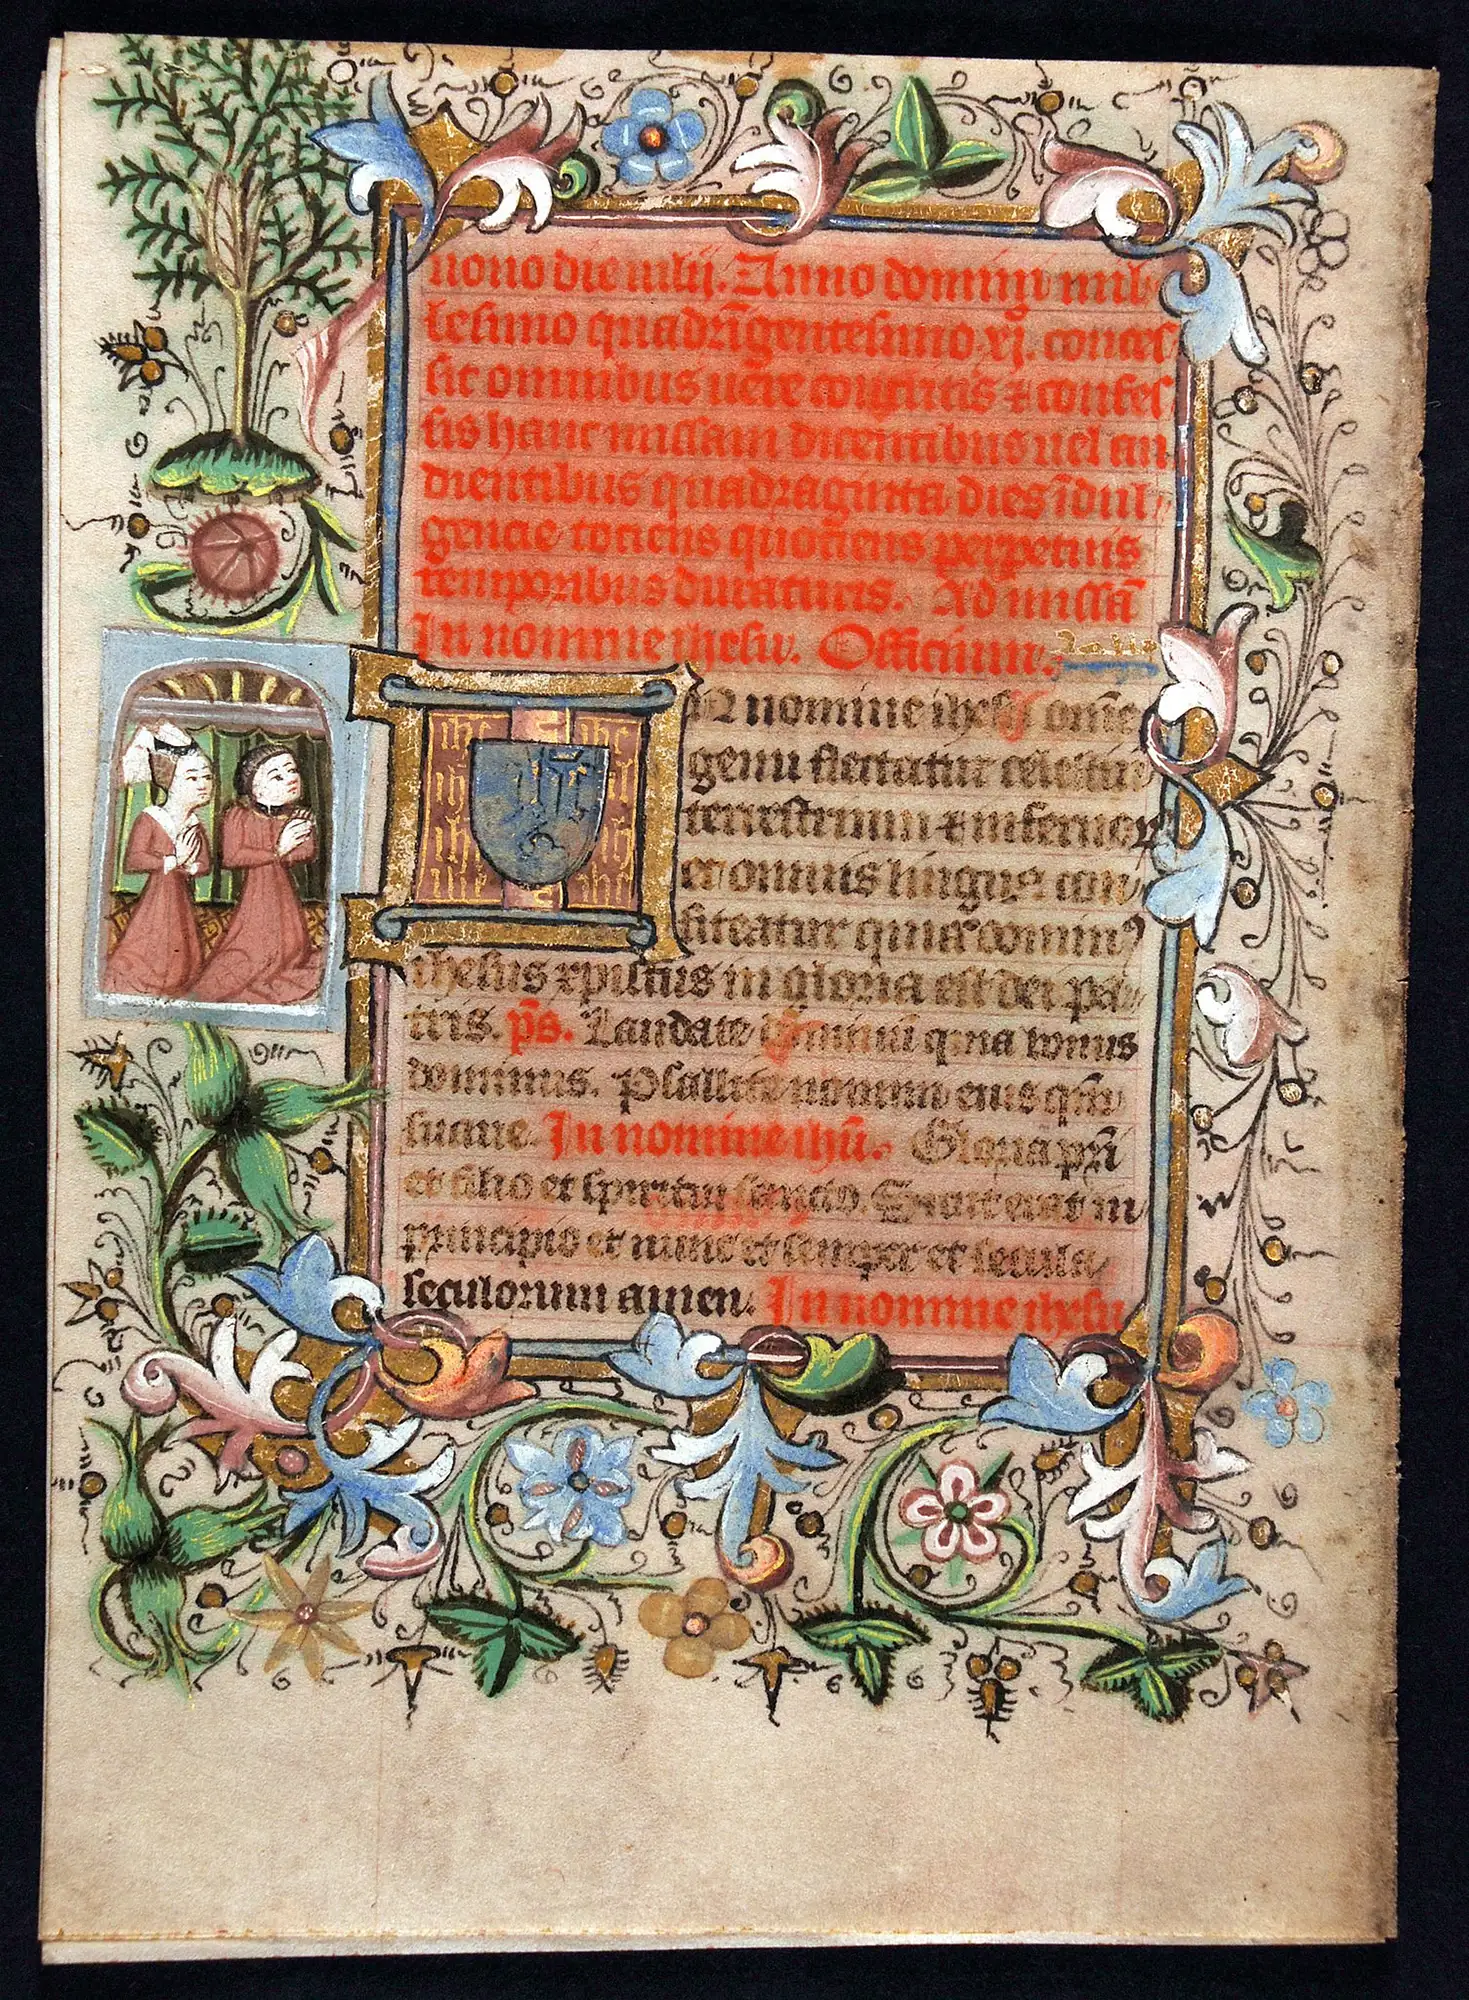 nono die iulij. Anno domini mil
lesimo quadrīgentesimo xj. conces
sit omnibus uere contritis ⁊ confes
sis hanc missam dicentibus uel au
dientibus quadraginta dies īdul
gencie tociens quociens perpetuis
temporibus duraturis. Ad missā
In nomine ihesu. Officium.
IN nomine ihesu omē
genu flectatur celestiū
terrestrium ⁊ infernorꝝ
et omnis lingua con
fiteatur quia dominꝰ
ihesus xpistus in gloria est dei pa
tris. p̄s. Laudate dominū quia bonus
dominus. Psallite nomini eius qm̄
suaue. In nomine ihū. Gloria pri
et filio et spiritui sancto. Sicut erat in
principio et nunc et semper et secula
seculorum amen. In nomine ihesu
ihc